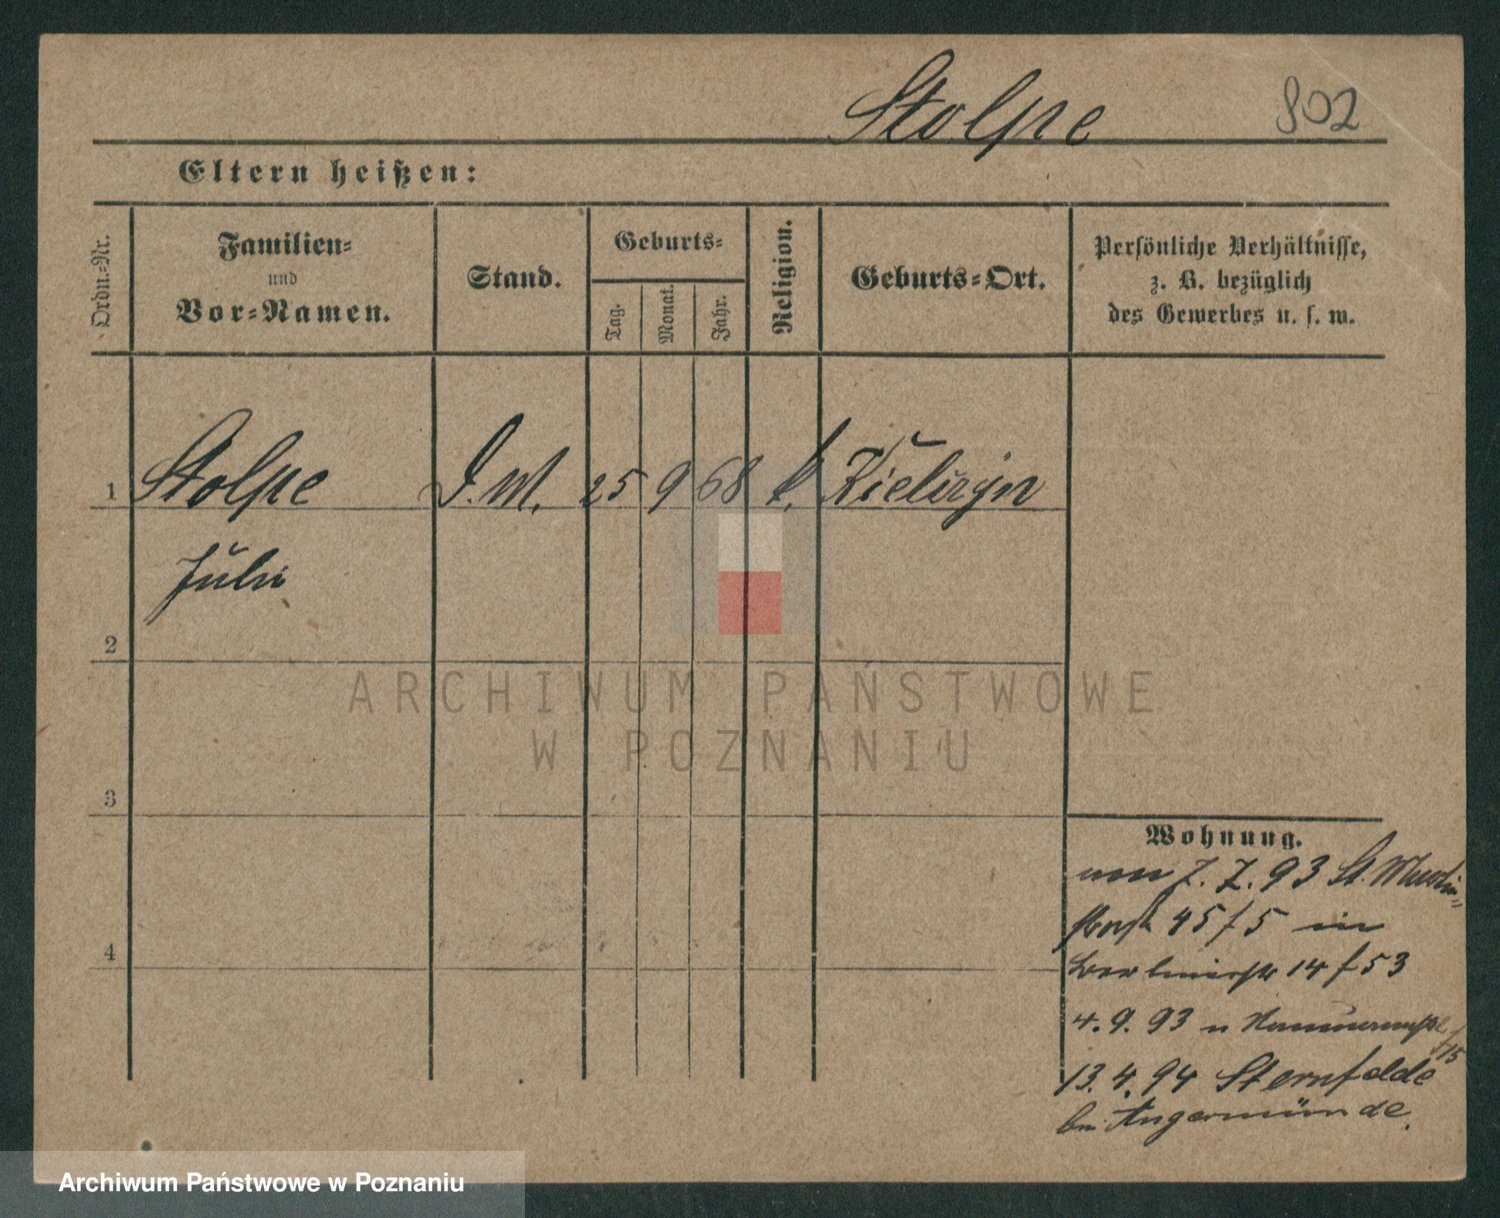 Stolpe 802
Eltern heißen:
Ordn.-Nr.
Familien-
und
Vor-Namen.
Stand.
Geburts-
Tag.
Monat.
Jahr.
Religion.
Geburts-Ort.
Persönliche Verhältnisse,
z. B. bezüglich
des Gewerbes u. s. w.
1 Stolpe D.M. 25 9 68 k.
Julie
2
3
4
Wohnung.
von 7. 7. 93 St. Martin-
45/5 in
14/53
4. 9. 93 n
/15
13. 4. 94 Sternfelde
bei Angermünde.
ARCHIWUM PAŃSTWOWE
W POZNANIU
Archiwum Państwowe w Poznaniu